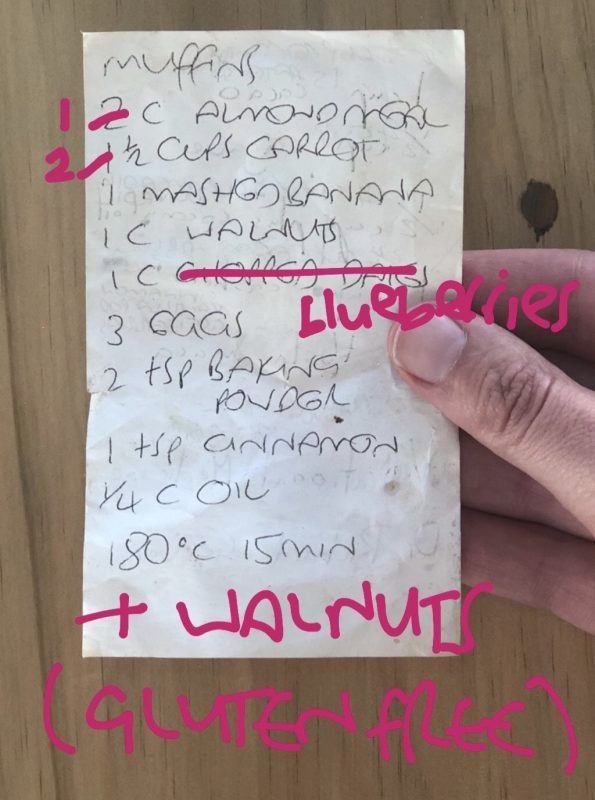 MUFFINS
1 2 C ALMOND MEAL
2 1 1/2 CUPS CARROT
1 MASHED BANANA
1 C WALNUTS
1 C CHOPPED DATES
blueberries
3 EGGS
2 tsp BAKING
POWDER
1 tsp CINNAMON
1/4 C OIL
180°C 15 MIN
+ WALNUTS
(GLUTEN FREE)